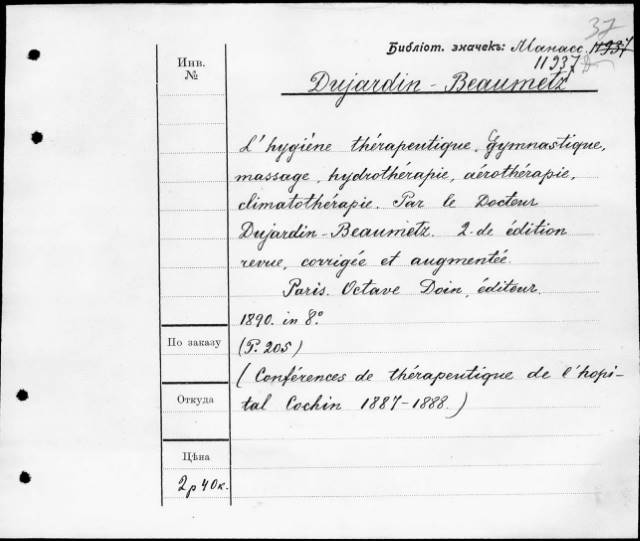 37
Библіот. значекъ: Манасс. 11937
11937
Инв.
№
Dujardin-Beaumetz
L'hygiène thérapeutique. Gymnastique,
massage, hydrothérapie, aérothérapie,
climatothérapie. Par le Docteur
Dujardin-Beaumetz. 2-de édition
revue, corrigée et augmentée.
Paris. Octave Doin, éditeur.
1890. in 8°.
По заказу
(P. 205)
(Conférences de thérapeutique de l'hopi-
Откуда
tal Cochin 1887-1888.)
Цѣна
2 р 40 к.